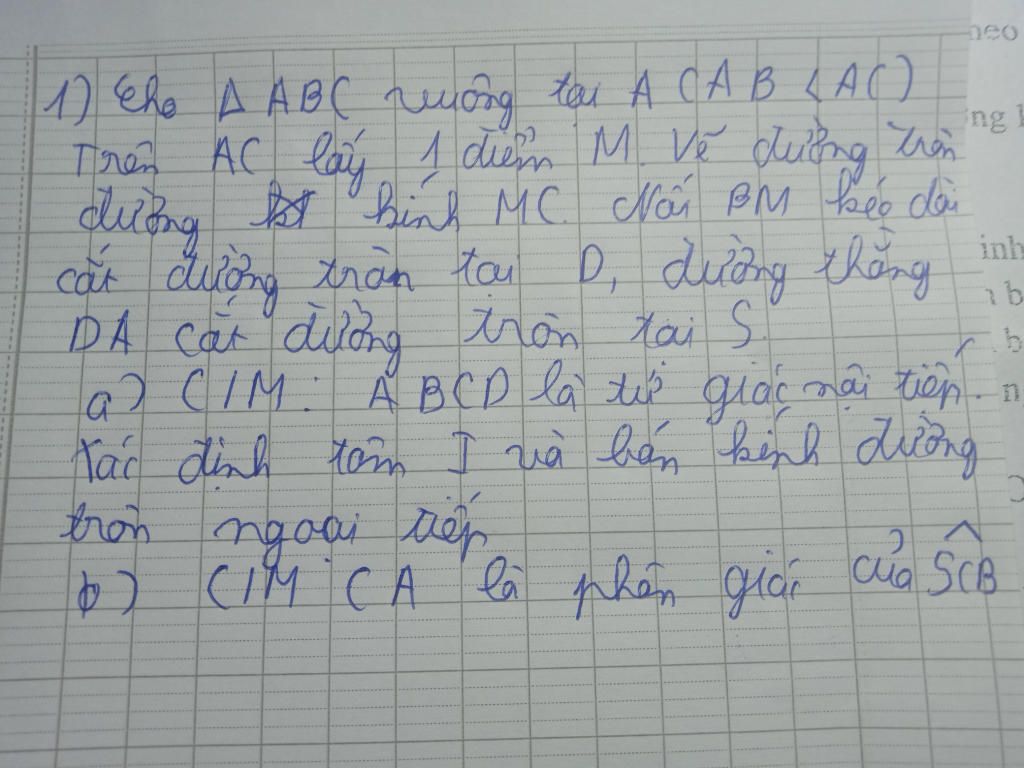 1) Cho Δ ABC vuông tại A (AB < AC)
Trên AC lấy 1 điểm M. Vẽ đường tròn
đường kính MC. Nối BM kéo dài
cắt đường tròn tại D, đường thẳng
DA cắt đường tròn tại S.
a) C/M: ABCD là tứ giác nội tiếp.
Xác định tâm I và bán kính đường
tròn ngoại tiếp
b) C/M: CA là phân giác của SCB
heo
ng
inh
b
b
n